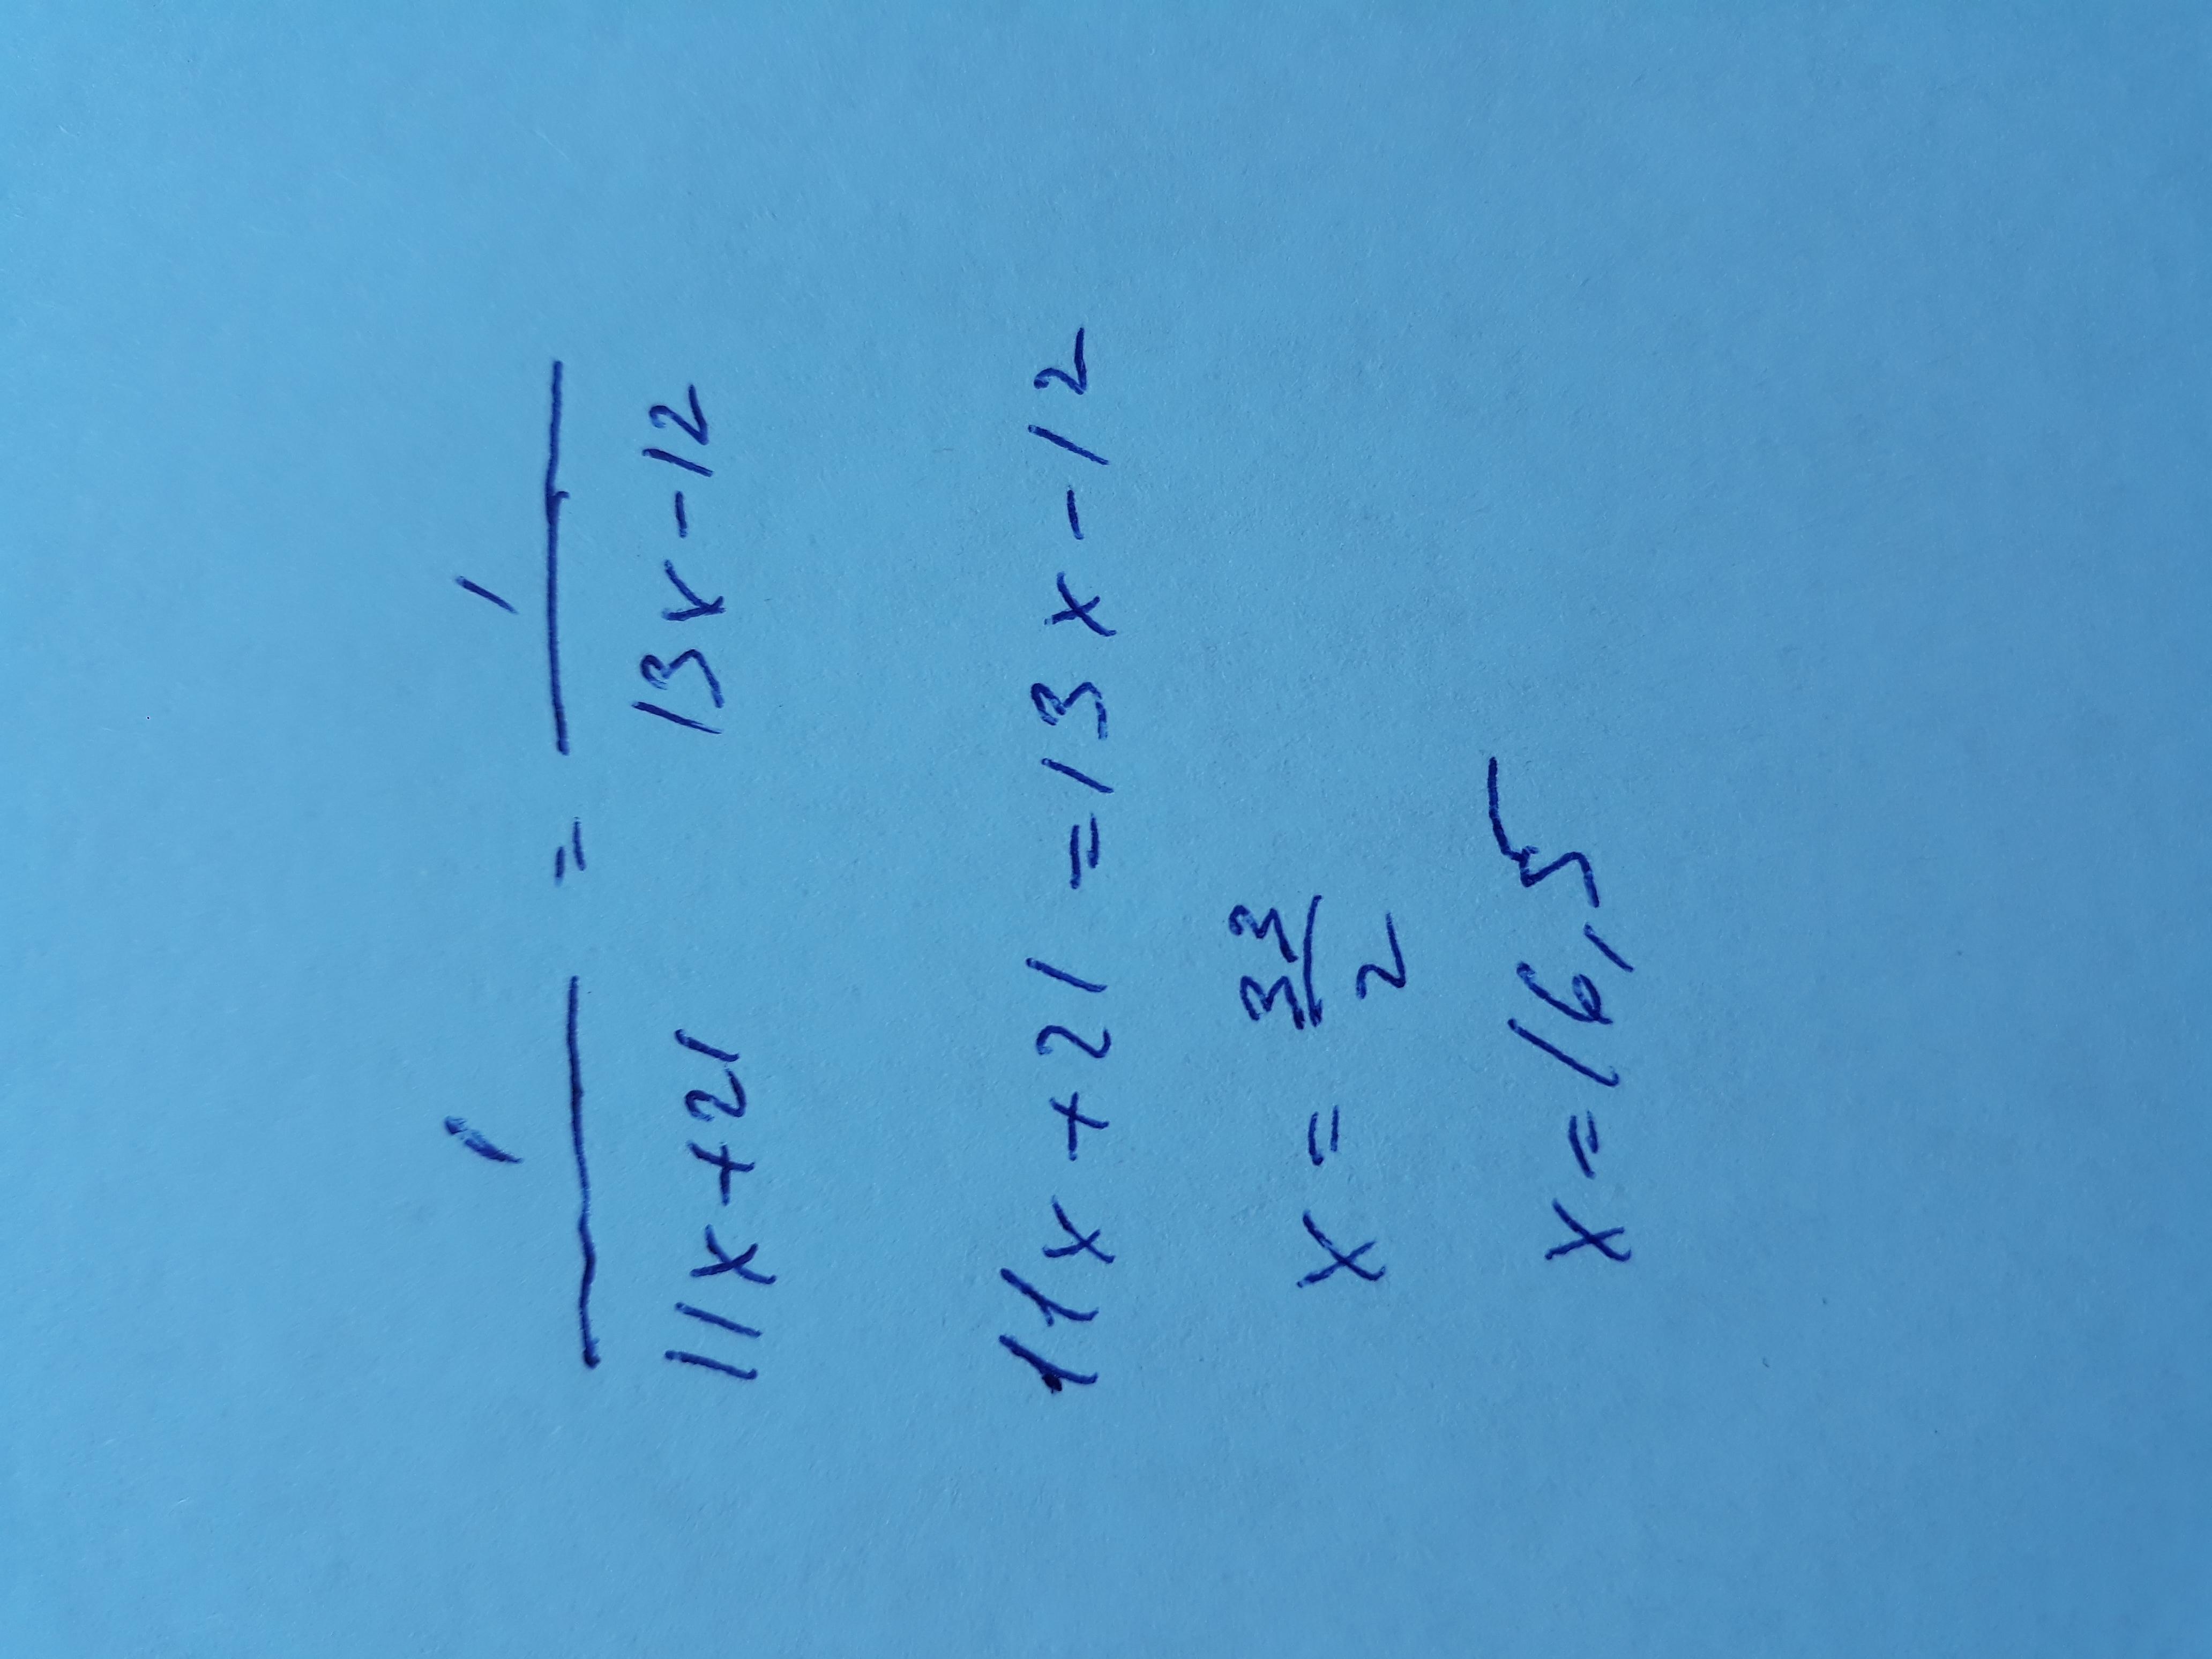 1/(11x+21) = 1/(13x-12)
11x+21=13x-12
x = 33/2
x=16,5